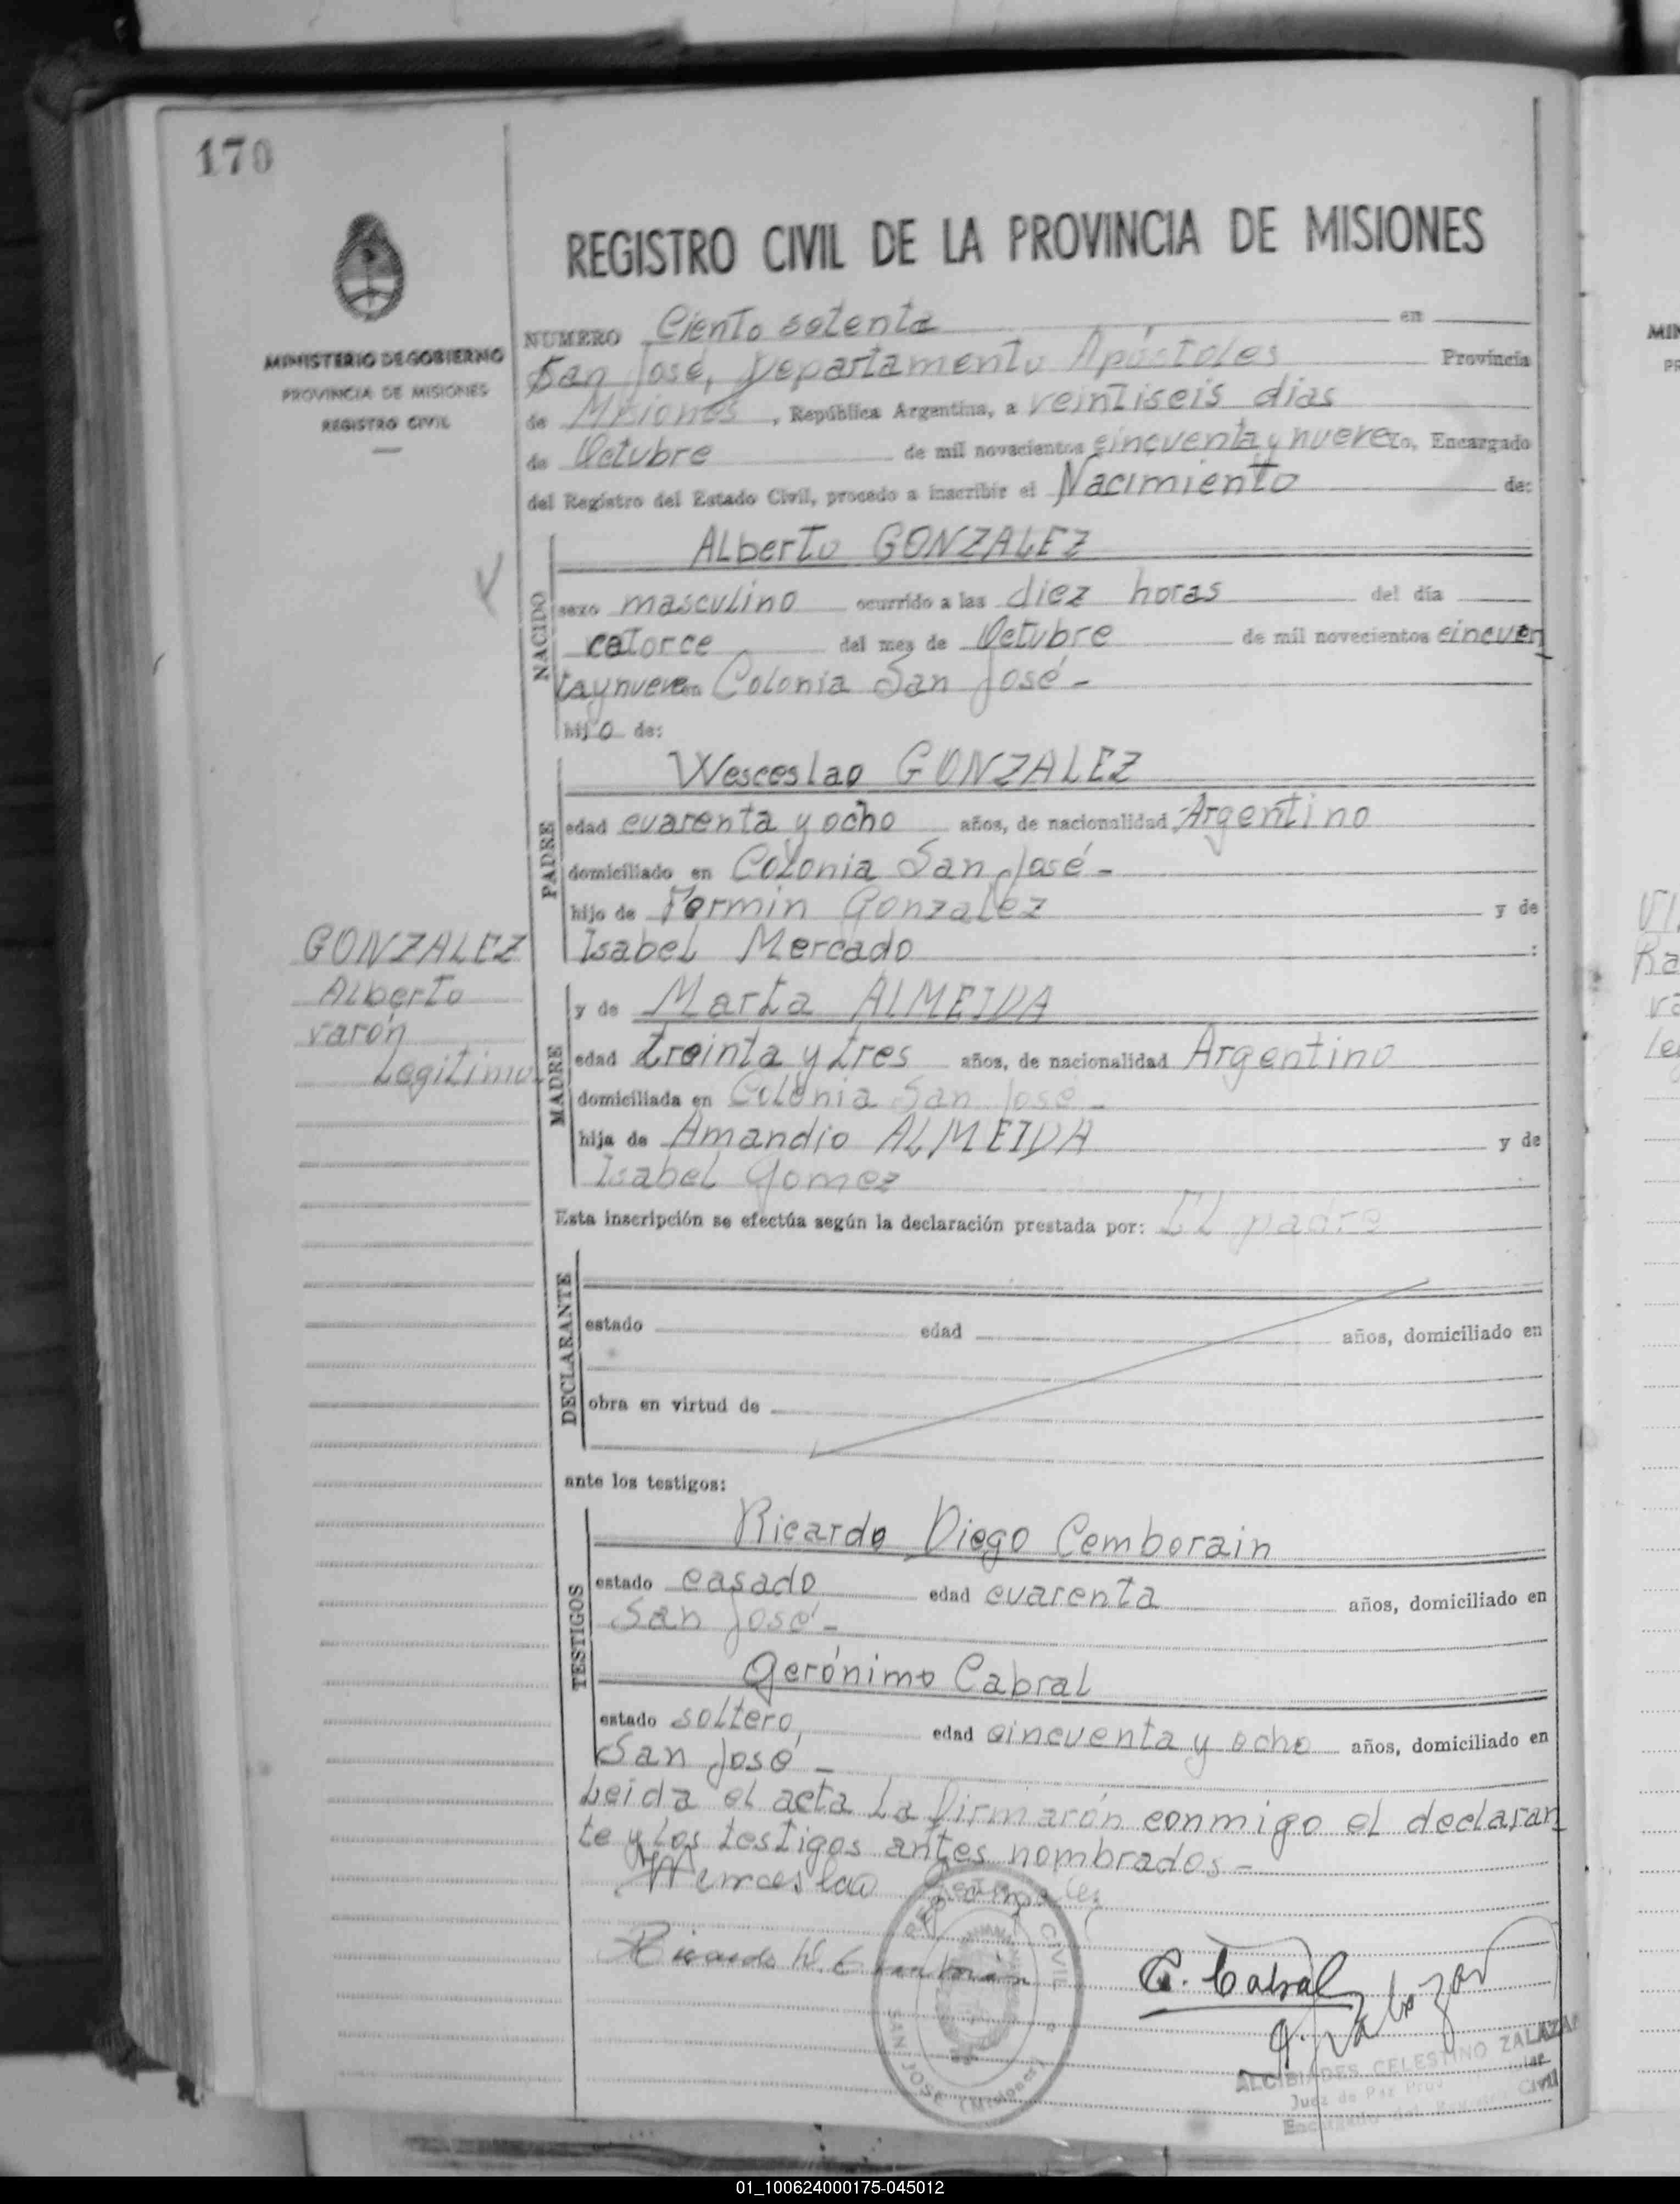 170
MINISTERIO DE GOBIERNO
PROVINCIA DE MISIONES
REGISTRO CIVIL
REGISTRO CIVIL DE LA PROVINCIA DE MISIONES
NUMERO Ciento setenta en
San José, Departamento Apóstoles Provincia
de Misiones, República Argentina, a veintiseis dias
de Octubre de mil novecientos cincuenta y nueve yo, Encargado
del Registro del Estado Civil, procedo a inscribir el Nacimiento de:
NACIDO
Alberto GONZALEZ
sexo masculino ocurrido a las diez horas del día
catorce del mes de Octubre de mil novecientos cincuen
ta y nueve en Colonia San José -
hijo de:
PADRE
Wesceslao GONZALEZ
edad cuarenta y ocho años, de nacionalidad Argentino
domiciliado en Colonia San José -
hijo de Fermin Gonzalez y de
Isabel Mercado :
GONZALEZ
Alberto
varón
Legitimo
MADRE
y de Marta ALMEIDA
edad treinta y tres años, de nacionalidad Argentino
domiciliada en Colonia San José -
hija de Amandio ALMEIDA y de
Isabel Gomez
Esta inscripción se efectúa según la declaración prestada por: El padre
DECLARANTE
estado edad años, domiciliado en
obra en virtud de
ante los testigos:
TESTIGOS
Ricardo Diego Cemborain
estado casado edad cuarenta años, domiciliado en
San José -
Gerónimo Cabral
estado soltero, edad cincuenta y ocho años, domiciliado en
San José -
Leida el acta la firmarón conmigo el declaran
te y los testigos antes nombrados -
Wenceslao Gonzalez
Ricardo D. Cemborain
G. Cabral
A. Zalazar
REGISTRO CIVIL
SAN JOSE (Misiones)
ALCIBIADES CELESTINO ZALAZAR
Juez de Paz
Encargado del Registro Civil
01_100624000175-045012